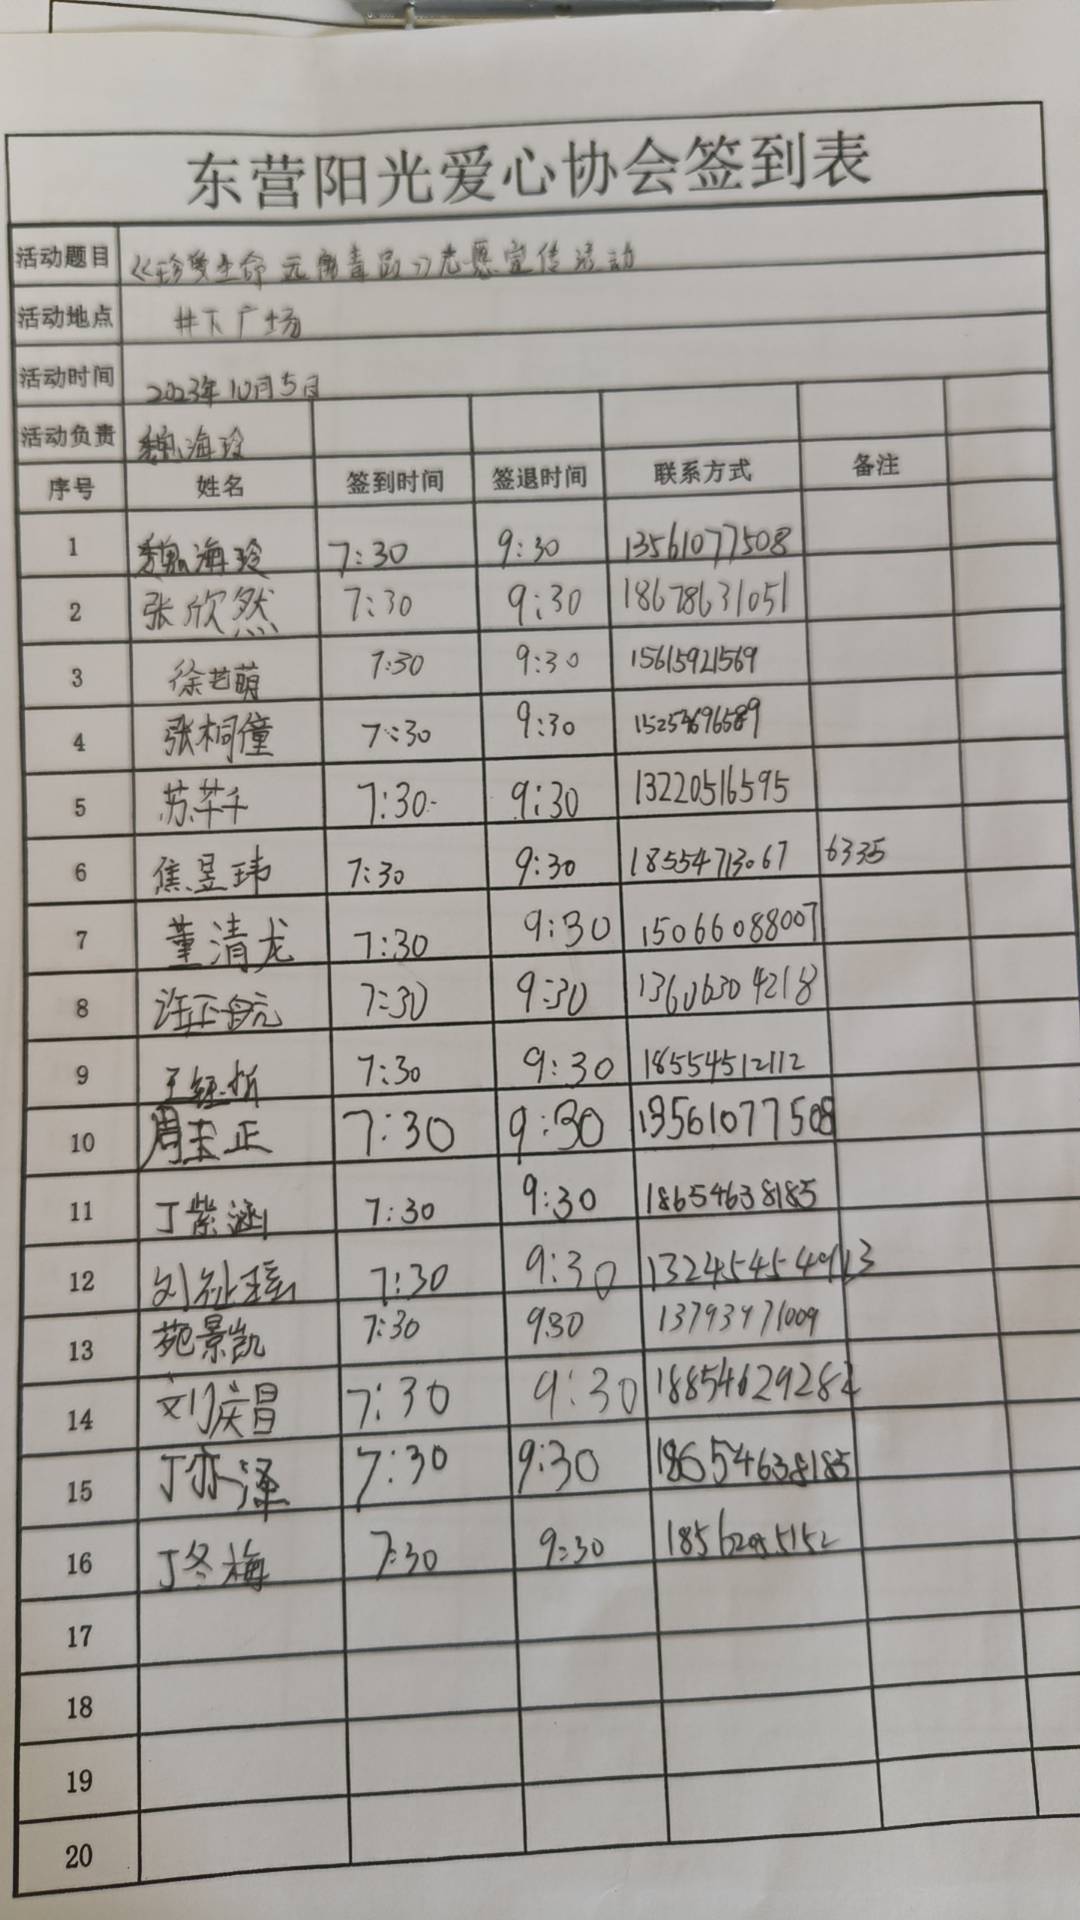 东营阳光爱心协会签到表
活动题目 《珍爱生命 远离毒品》志愿宣传活动
活动地点 井下广场
活动时间 2023年10月5日
活动负责 魏海玲
序号 姓名 签到时间 签退时间 联系方式 备注
1 魏海玲 7:30 9:30 13561077508
2 张欣然 7:30 9:30 18678631051
3 徐艺萌 7:30 9:30 15615921569
4 张桐僮 7:30 9:30
5 苏芊千 7:30 9:30 13220516595
6 焦昱玮 7:30 9:30 18554713067 6335
7 董清龙 7:30 9:30 15066088007
8 许正航 7:30 9:30 13606304218
9 7:30 9:30 18554512112
10 7:30 9:30 13561077508
11 丁紫涵 7:30 9:30 18654638185
12 7:30 9:30
13 苑景凯 7:30 9:30 13793971009
14 刘庆昌 7:30 9:30 18854629282
15 丁亦泽 7:30 9:30 18654638185
16 丁冬梅 7:30 9:30
17
18
19
20